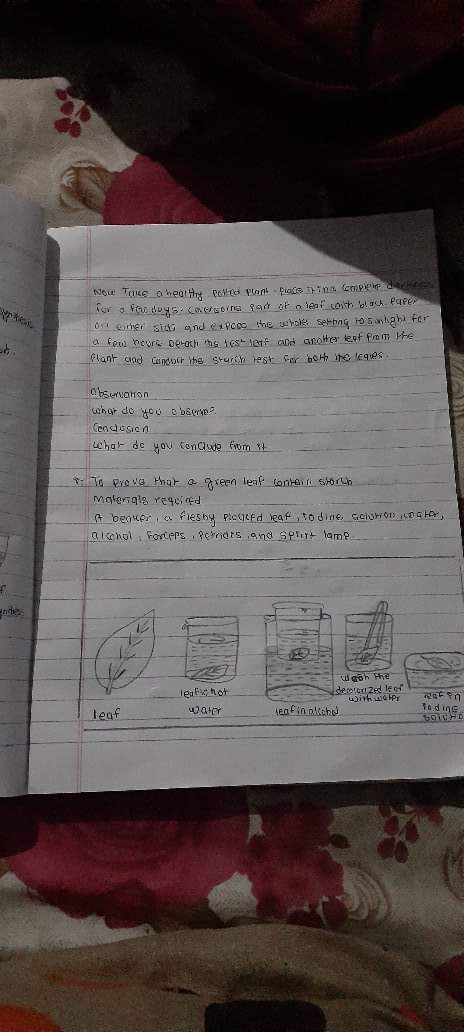 Now Take a healthy potted plant. place it in a complete darkness
for a few days. Cover some part of a leaf with black paper
on either side and expose the whole setting to sunlight for
a few hours Detach the test leaf and another leaf from the
plant and conduct the starch test for both the leaves.
observation
what do you observe?
Conclusion
what do you conclude from it
To prove that a green leaf contain starch
Materials required
A beaker, a fleshy plucked leaf, Iodine solution, water,
alcohol, Forceps, and spirit lamp.
leaf
leaf in hot
water
leaf in alcohol
wash the
decolorized leaf
with water
leaf in
Iodine